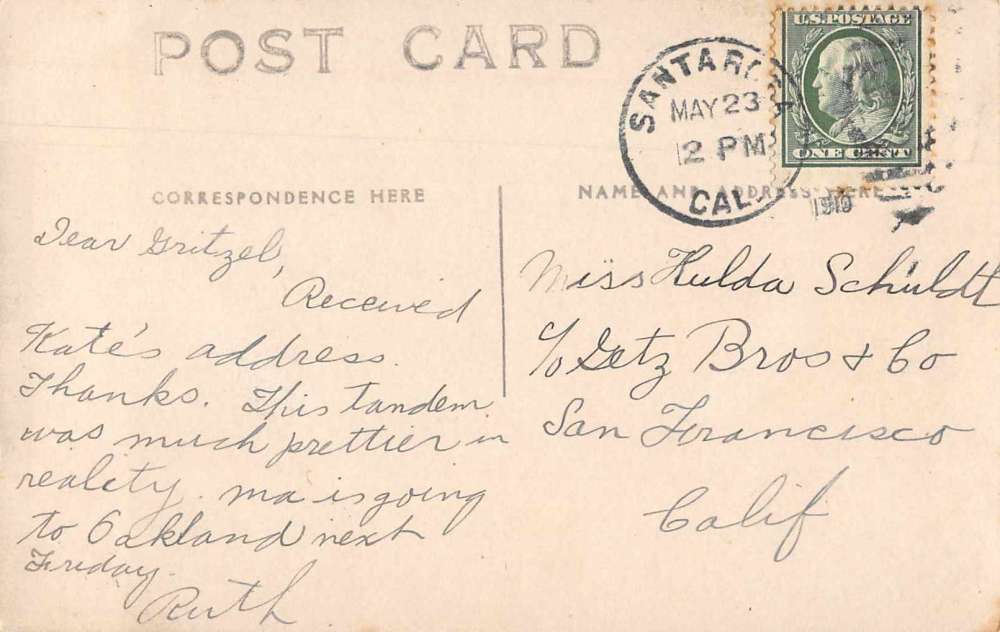 POST CARD
SANTA ROSA
MAY 23
12 PM
CAL.
1910
U.S. POSTAGE
ONE CENT
CORRESPONDENCE HERE
NAME AND ADDRESS HERE
Dear Gritzel,
Received
Kate's address.
Thanks. This tandem
was much prettier in
reality. Ma is going
to Oakland next
Friday.
Ruth
Miss Hulda Schuldt
c/o Getz Bros & Co
San Francisco
Calif